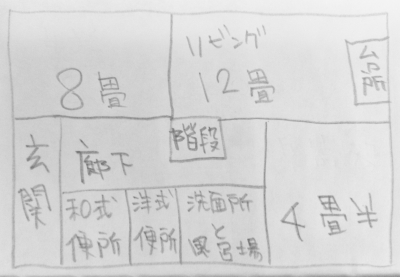 8畳
リビング
12畳
台所
玄関
廊下
階段
和式
便所
洋式
便所
洗面所
4畳半